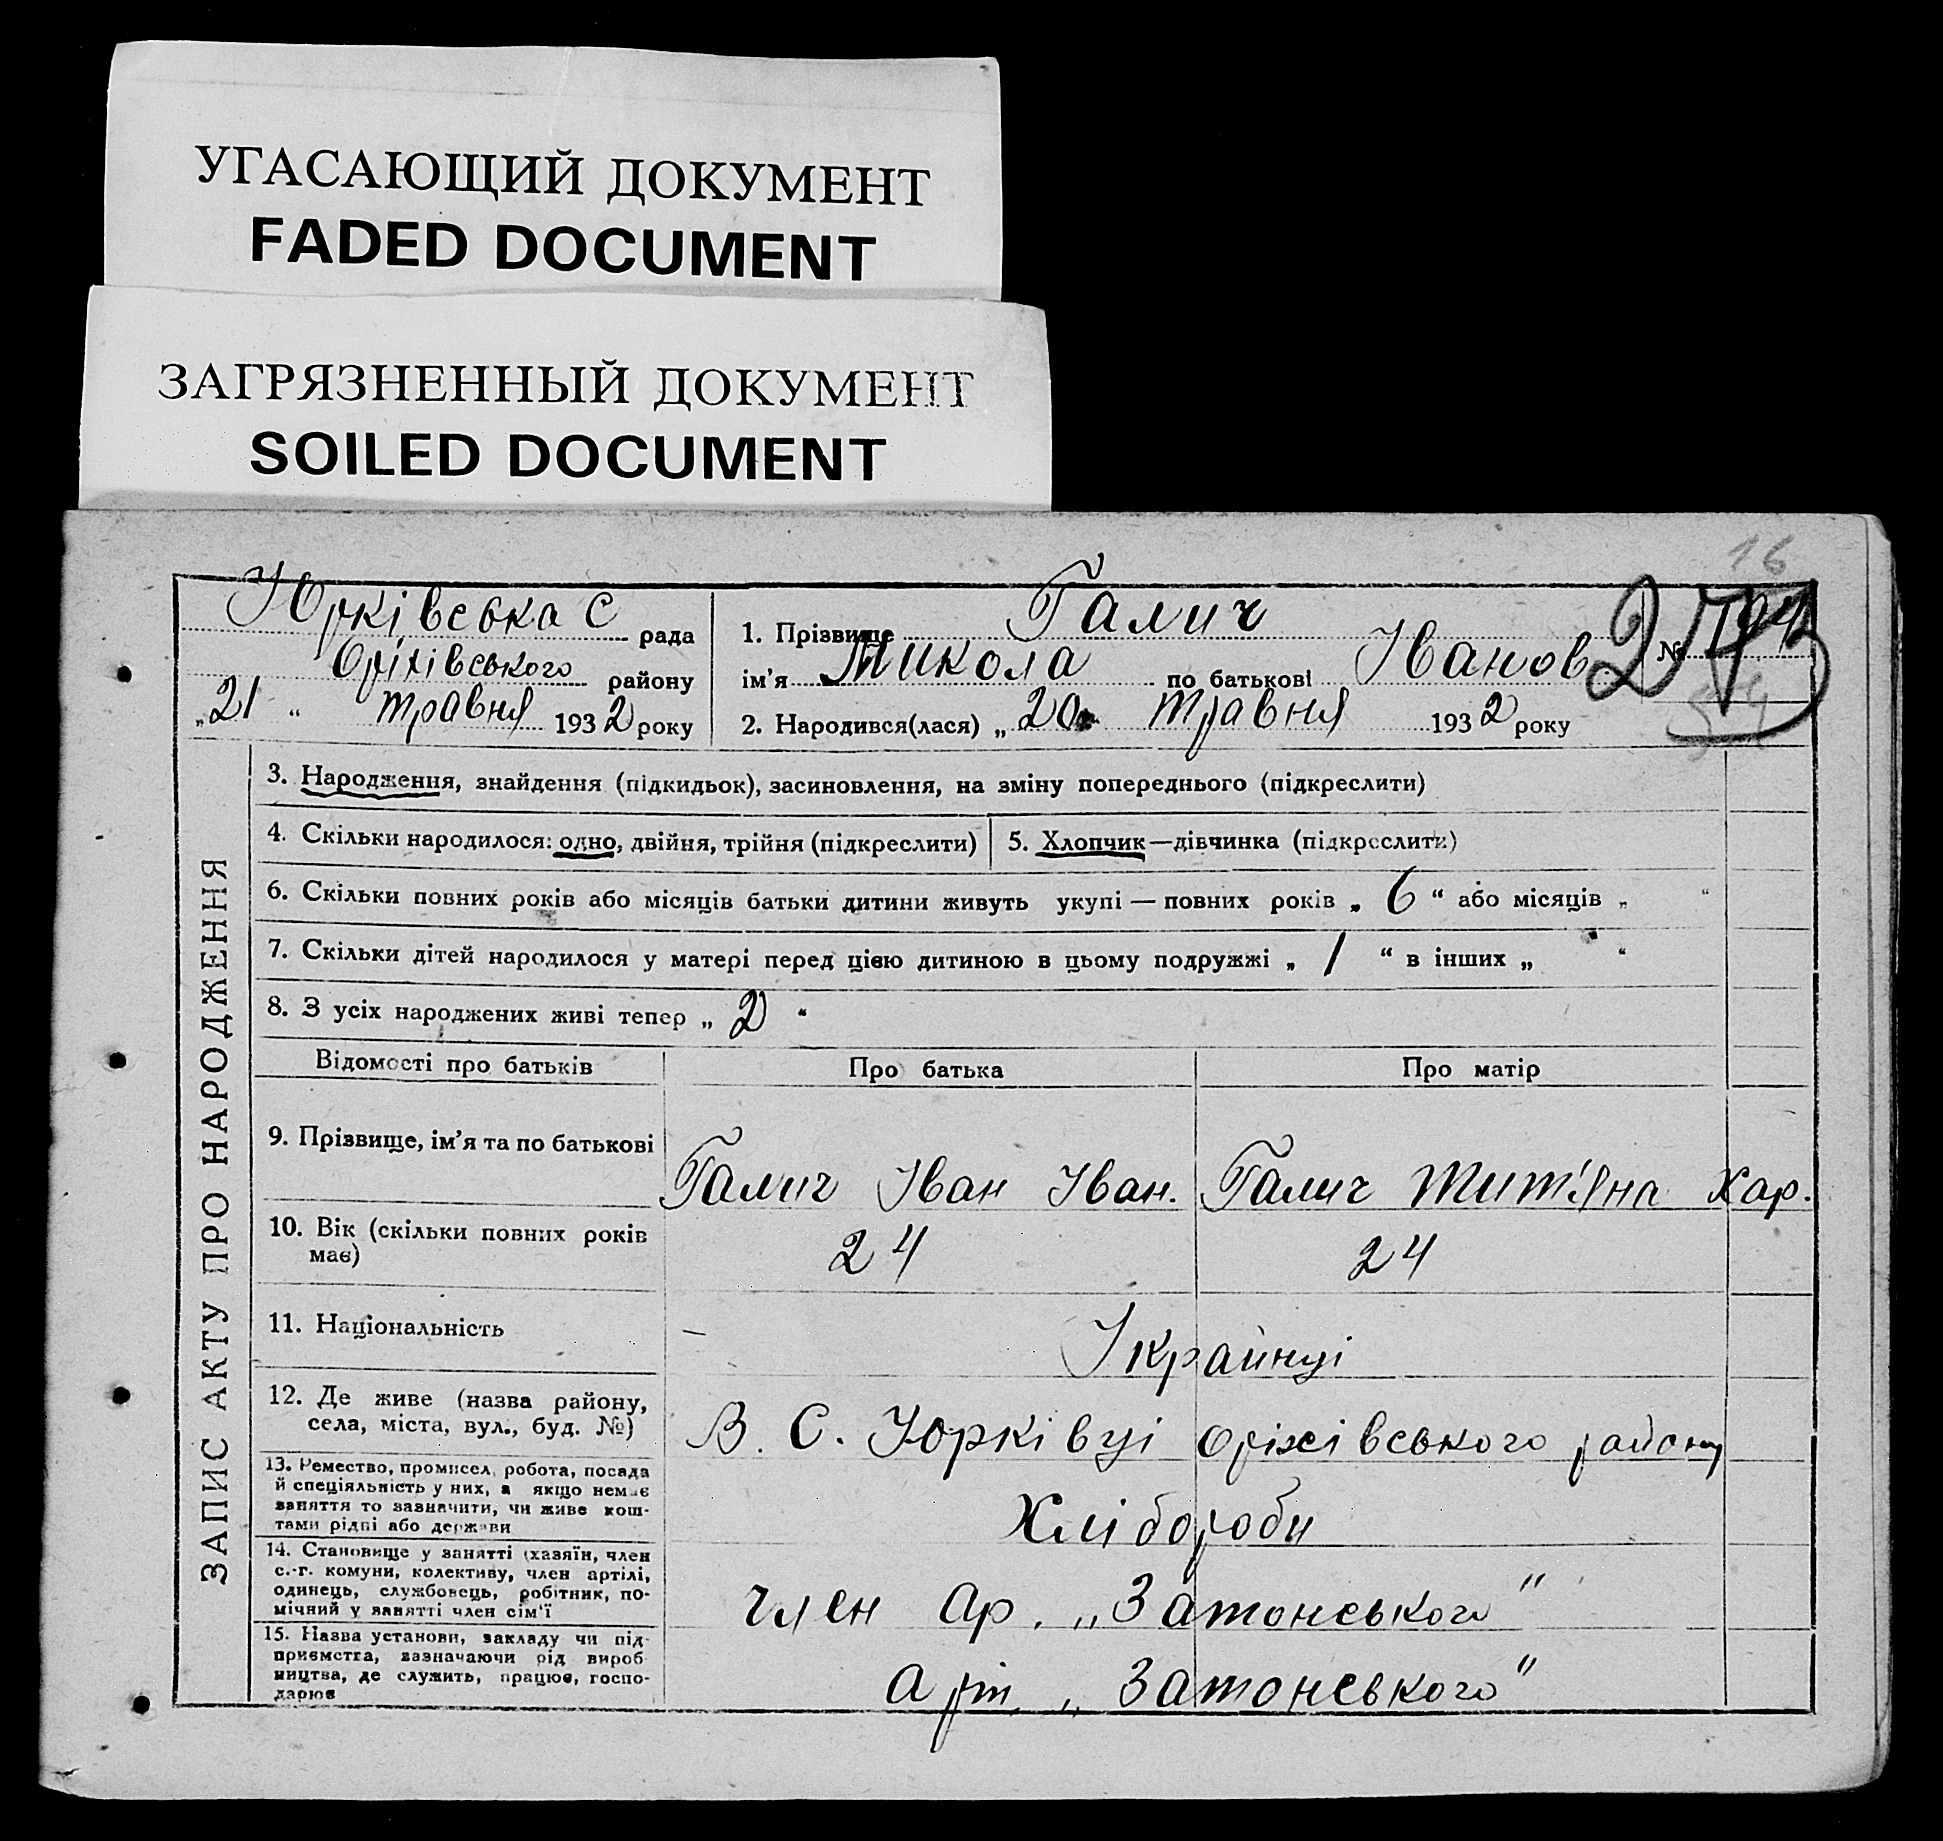 УГАСАЮЩИЙ ДОКУМЕНТ
FADED DOCUMENT
ЗАГРЯЗНЕННЫЙ ДОКУМЕНТ
SOILED DOCUMENT
16
Юрківська С рада
Оріхівського району
„21“ травня 1932 року
1. Прізвище Галич
ім’я Микола по батькові Іванов №
2. Народився(лася) „20 травня 1932 року
ЗАПИС АКТУ ПРО НАРОДЖЕННЯ
3. Народження, знайдення (підкидьок), засиновлення, на зміну попереднього (підкреслити)
4. Скільки народилося: одно, двійня, трійня (підкреслити)
5. Хлопчик—дівчинка (підкреслити)
6. Скільки повних років або місяців батьки дитини живуть укупі — повних років „ 6 “ або місяців „ “
7. Скільки дітей народилося у матері перед цією дитиною в цьому подружжі „ 1 “ в інших „ “
8. З усіх народжених живі тепер „ 2 “
Відомості про батьків Про батька Про матір
9. Прізвище, ім’я та по батькові
Галич Іван Іван. Галич Тит'яна Хар.
10. Вік (скільки повних років
має)
24 24
11. Національність
Українці
12. Де живе (назва району,
села, міста, вул., буд. №)
В. С. Юрківці Оріхівського району
13. Ремество, промисел, робота, посада
й спеціяльність у них, а якщо немає
заняття то зазначити, чи живе кош-
тами рідні або держави
Хлібороби
14. Становище у занятті (хазяїн, член
с.-г. комуни, колективу, член артілі,
одинець, службовець, робітник, по-
мічний у занятті член сім’ї
член ар. „Затонського“
15. Назва установи, закладу чи під-
приємства, зазначаючи рід вироб
ництва, де служить, працює, госпо-
дарює
арт. „Затонського“